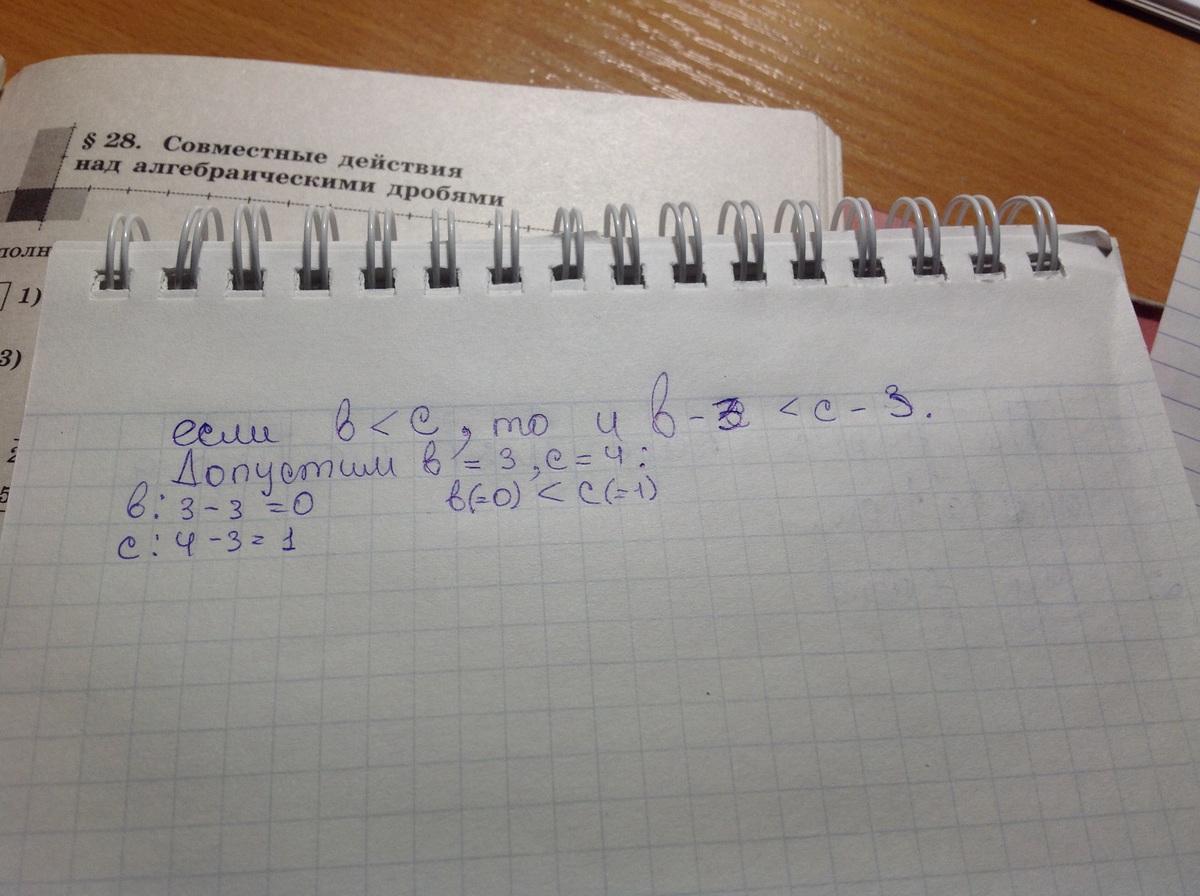 § 28. Совместные действия
над алгебраическими дробями
полн
1)
3)
2
5
если в < с, то и в - 3 < с - 3.
Допустим в = 3, с = 4:
в: 3 - 3 = 0 в(=0) < с(=1)
с: 4 - 3 = 1